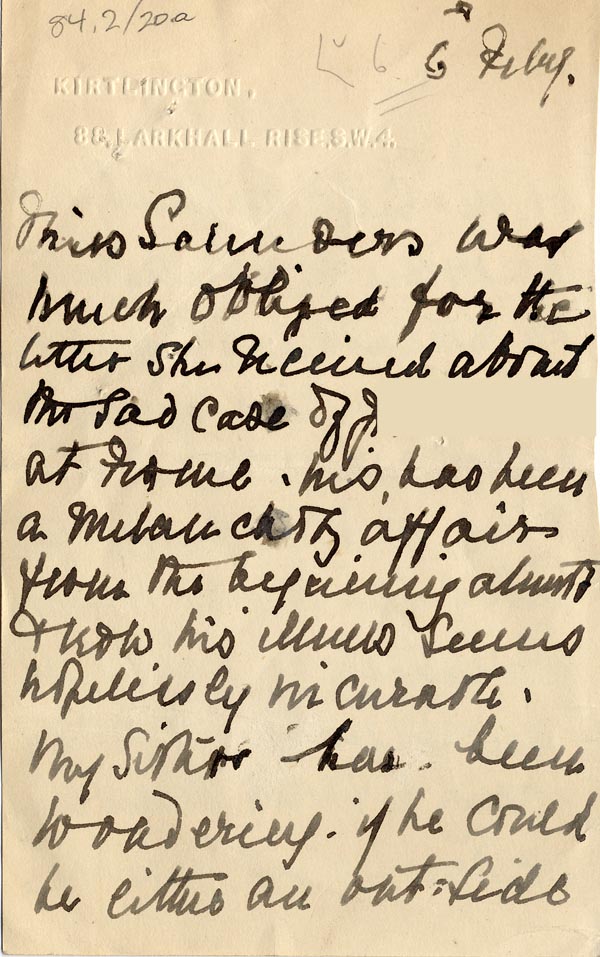 84.2/20a
6 Feby.
KIRTLINGTON,
88, LARKHALL RISE, S.W.4.
Miss Saunders was
much obliged for the
letter she received about
the sad case of J
at Frome. his, has been
a melancholy affair
from the beginning almost
& now his illness seems
hopelessly incurable.
My Sister has been
wondering if he could
be either an out-side